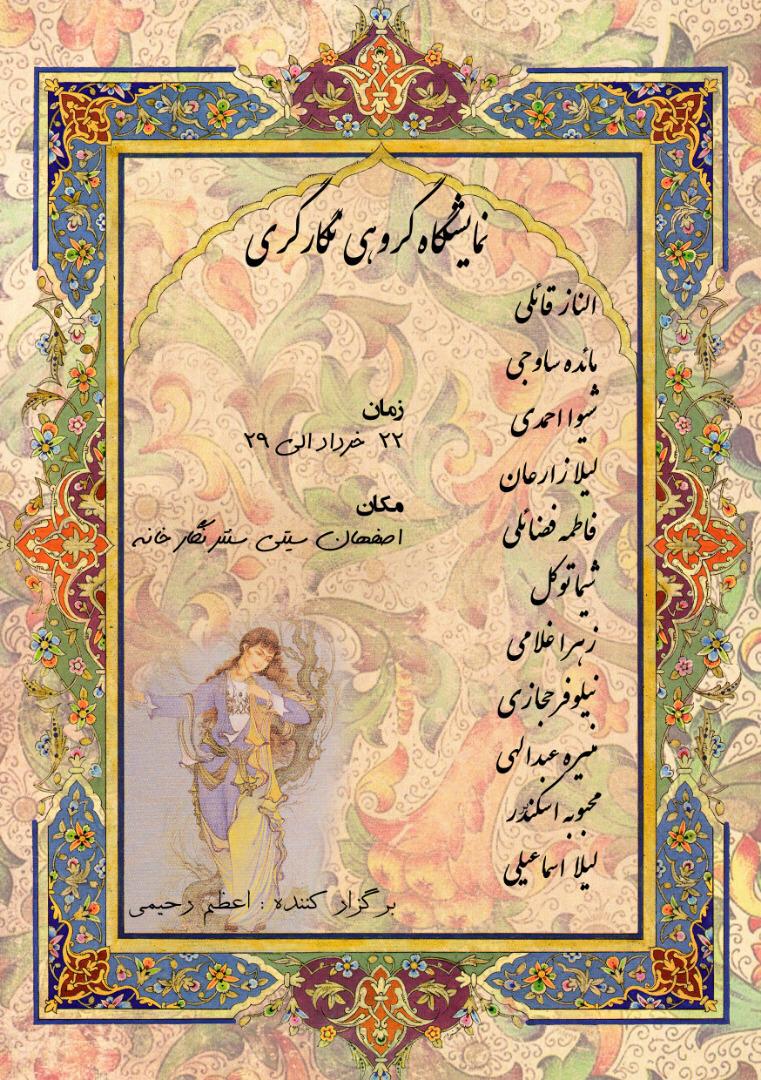 نمایشگاه گروهی نگارگری
الناز قائلی
مائده ساوجی
شیوا احمدی
لیلا زارعان
فاطمه فضائلی
شیما توکل
زهرا غلامی
نیلوفر حجازی
منیره عبدالهی
محبوبه اسکندر
لیلا اسماعیلی
زمان
۲۲ خرداد الی ۲۹
مکان
اصفهان سیتی سنتر نگار خانه
برگزار کننده : اعظم رحیمی